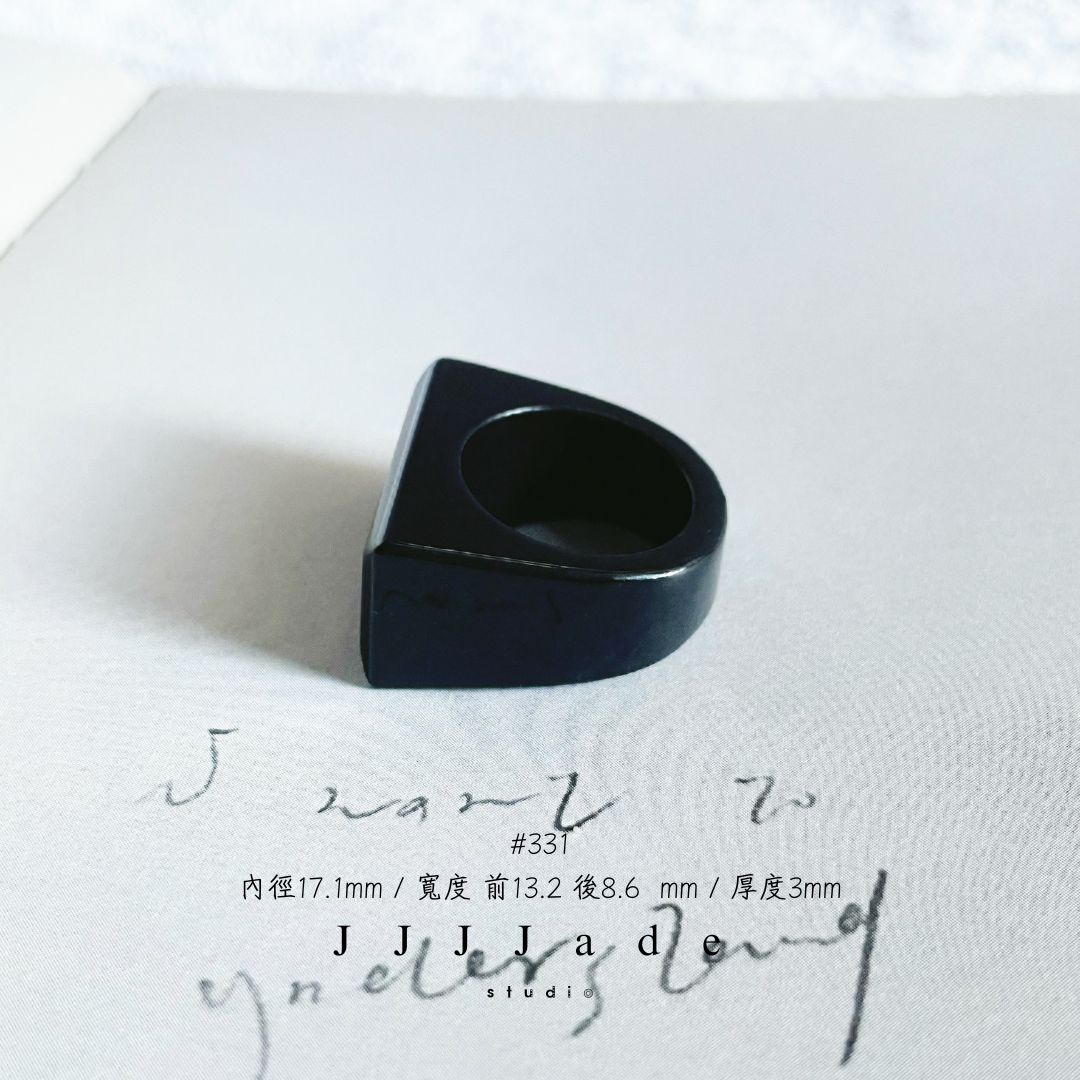 I want to
#331
內徑17.1mm / 寬度 前13.2 後8.6 mm / 厚度3mm
JJJJade
studio
understand